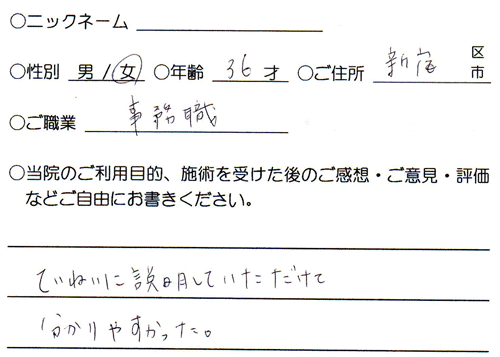 ○ニックネーム
○性別 男 / 女 ○年齢 36 才 ○ご住所 新宿 区
市
○ご職業 事務職
○当院のご利用目的、施術を受けた後のご感想・ご意見・評価
などご自由にお書きください。
ていねいに説明していただけて
分かりやすかった。